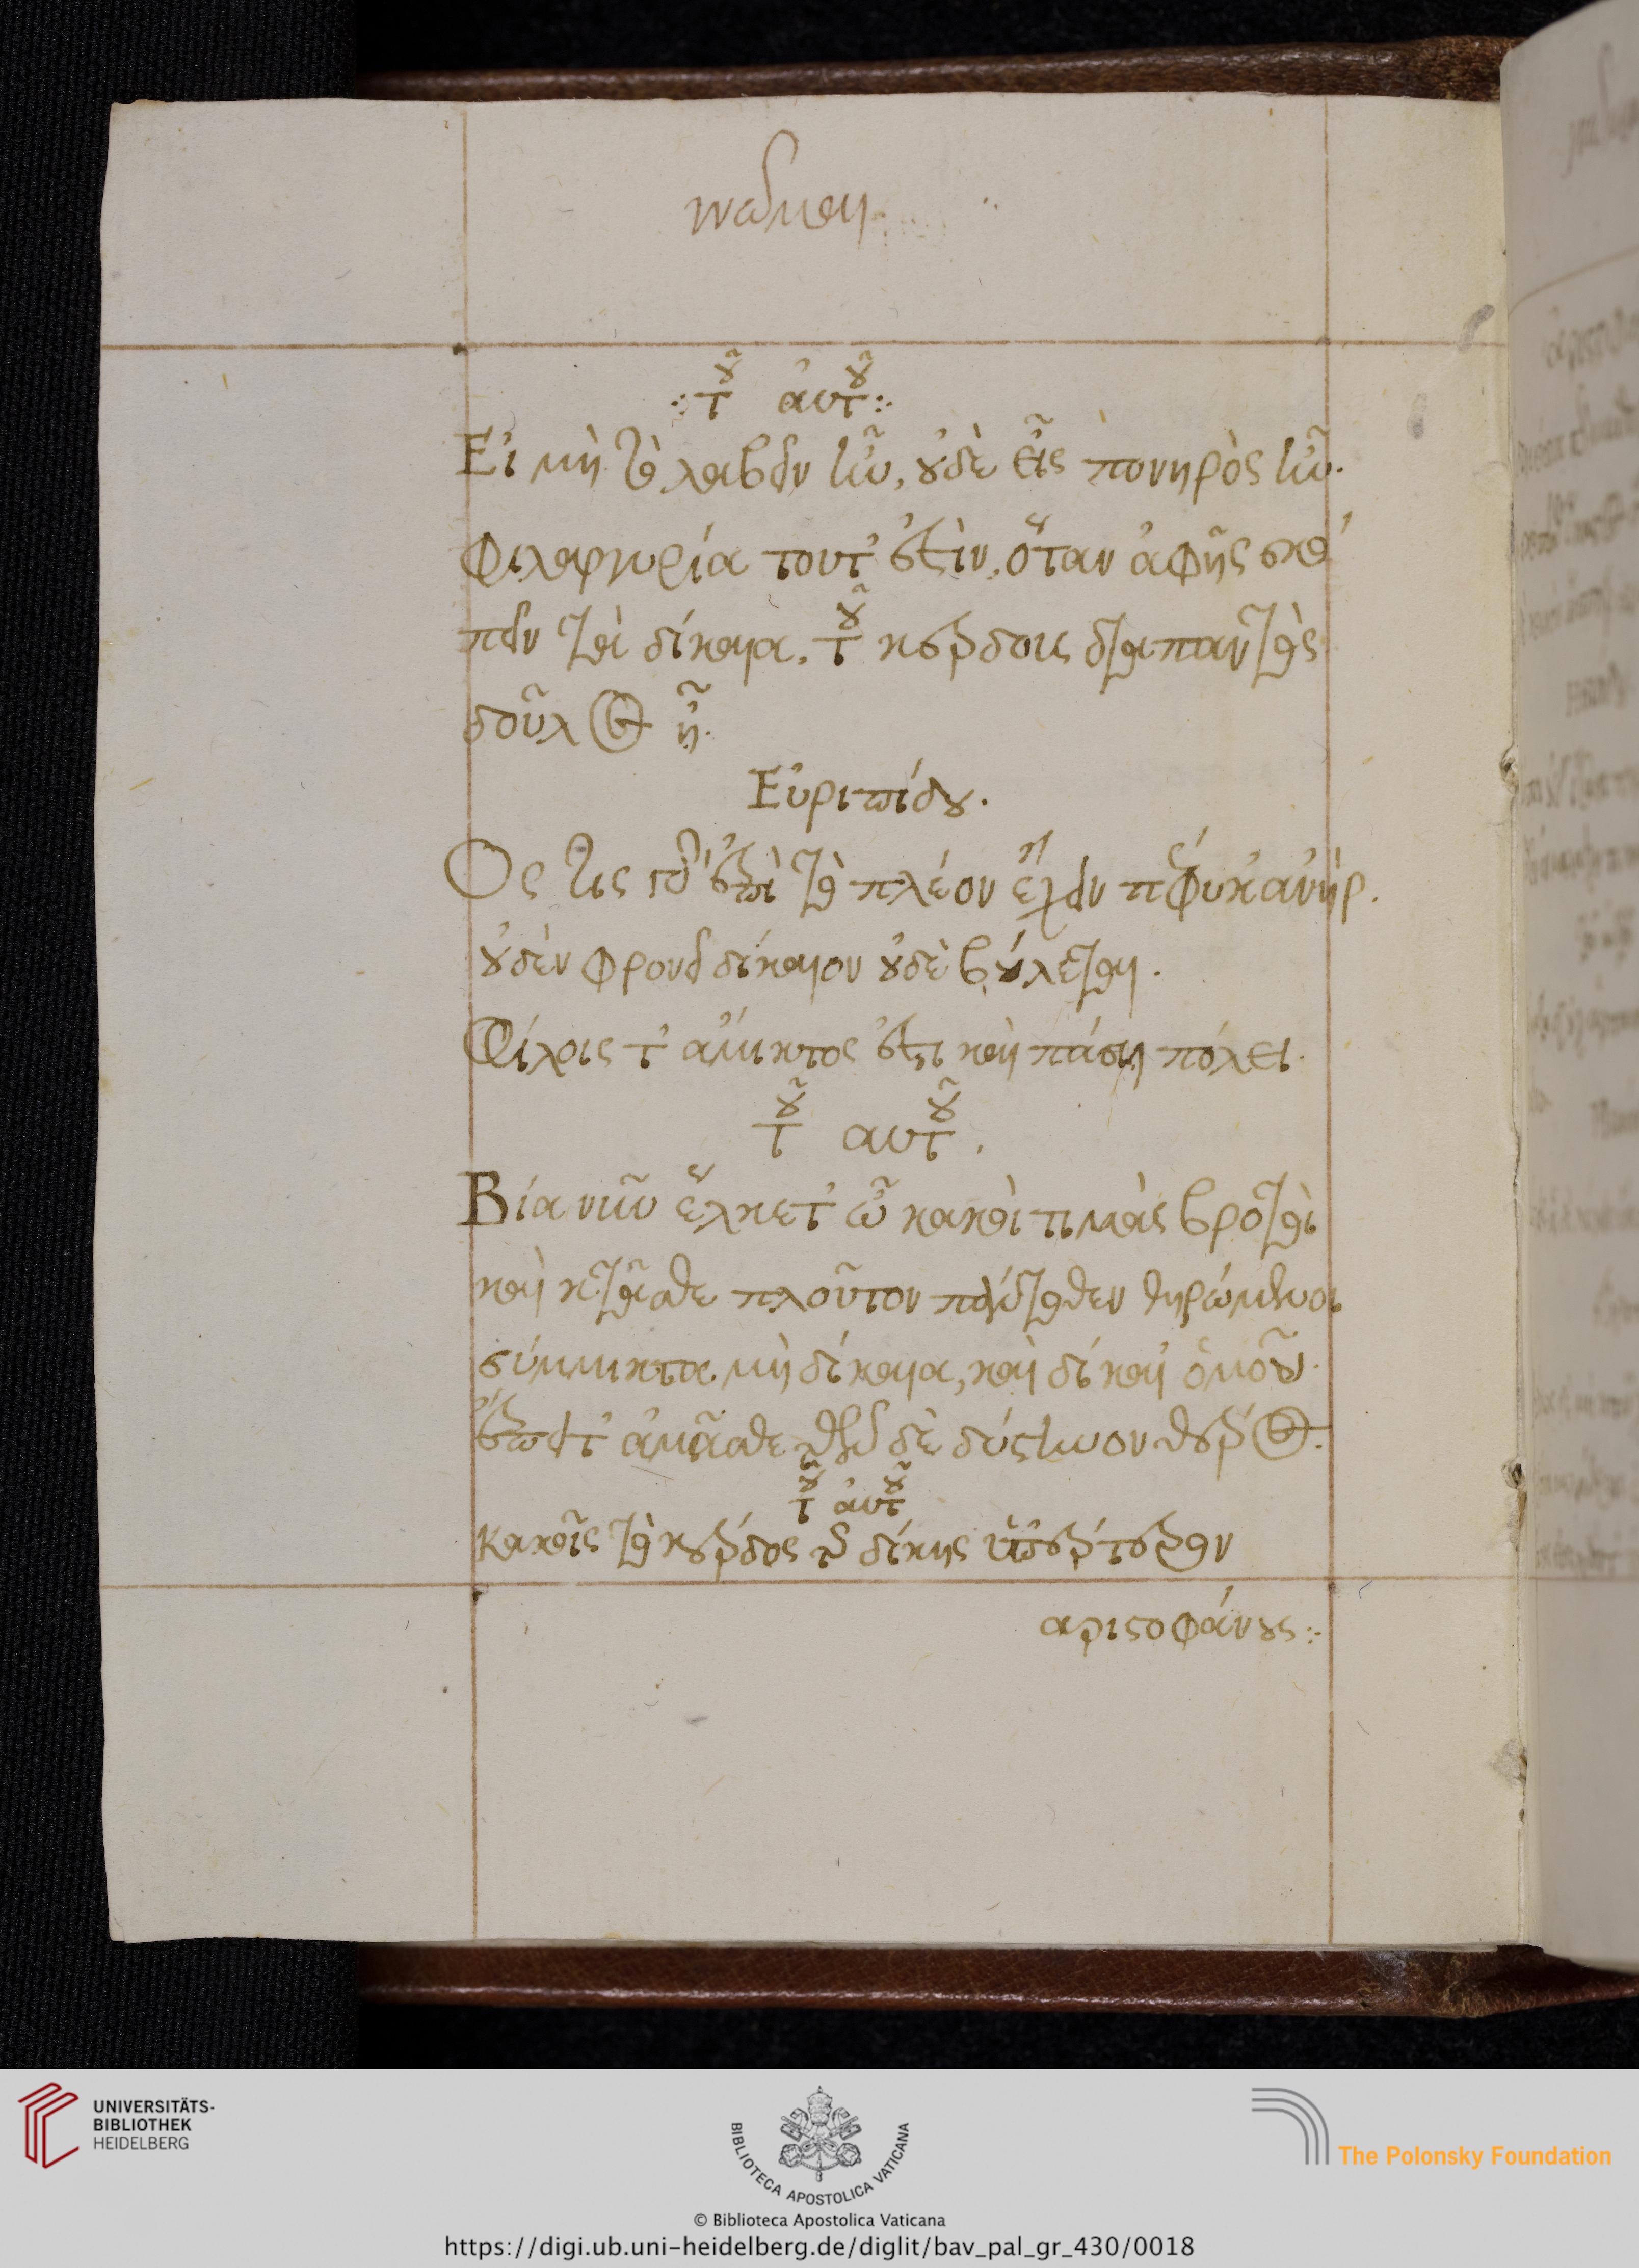 τοῦ αὐτοῦ
Εἰ μὴ τὸ λαβεῖν ἦν, οὐδὲ εἷς πονηρὸς ἦν.
Φιλαργυρία τουτ' ἐστὶν, ὅταν ἀφῇς σκο
πεῖν τὰ δίκαια. τοῦ κέρδους διαπαντὸς
δοῦλος ᾖ.
Εὐριπίδου.
Ος τις ἐπὶ τὸ πλέον ἔχειν πέφυκ' ἀνὴρ.
οὐδὲν φρονεῖ δίκαιον οὐδὲ βούλεται.
Φίλοις τ' ἄμικτος ἐστι καὶ πάσῃ πόλει.
τοῦ αυτοῦ.
Βία νῦν ἕλκετ' ὦ κακοὶ τιμὰς βροτοὶ
καὶ κτᾶσθε πλοῦτον πάντοθεν θηρώμενοι
σύμμικτα μὴ δίκαια, καὶ δίκαι' ὁμοῦ.
ἔπειτ' ἀμᾶσθε τῶνδε δύστηνον θέρος.
τοῦ αὐτοῦ
Κακοῖς τὸ κέρδος τῆς δίκης ὑπέρτερον
αριστοφάνους
UNIVERSITÄTS-
BIBLIOTHEK
HEIDELBERG
BIBLIOTECA APOSTOLICA VATICANA
The Polonsky Foundation
© Biblioteca Apostolica Vaticana
https://digi.ub.uni-heidelberg.de/diglit/bav_pal_gr_430/0018